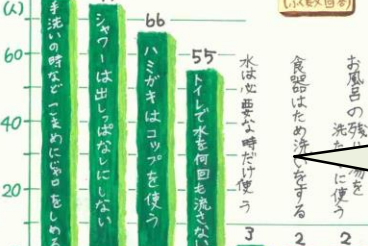 (人)
60
40
20
手洗いの時など こまめにじゃ口をしめる
シャワーは出しっぱなしにしない
66
ハミガキはコップを使う
55
トイレで水を何回も流さない
水は必要な時だけ使う
3
食器はため洗いをする
2
お風呂の残り湯を
洗たくに使う
2